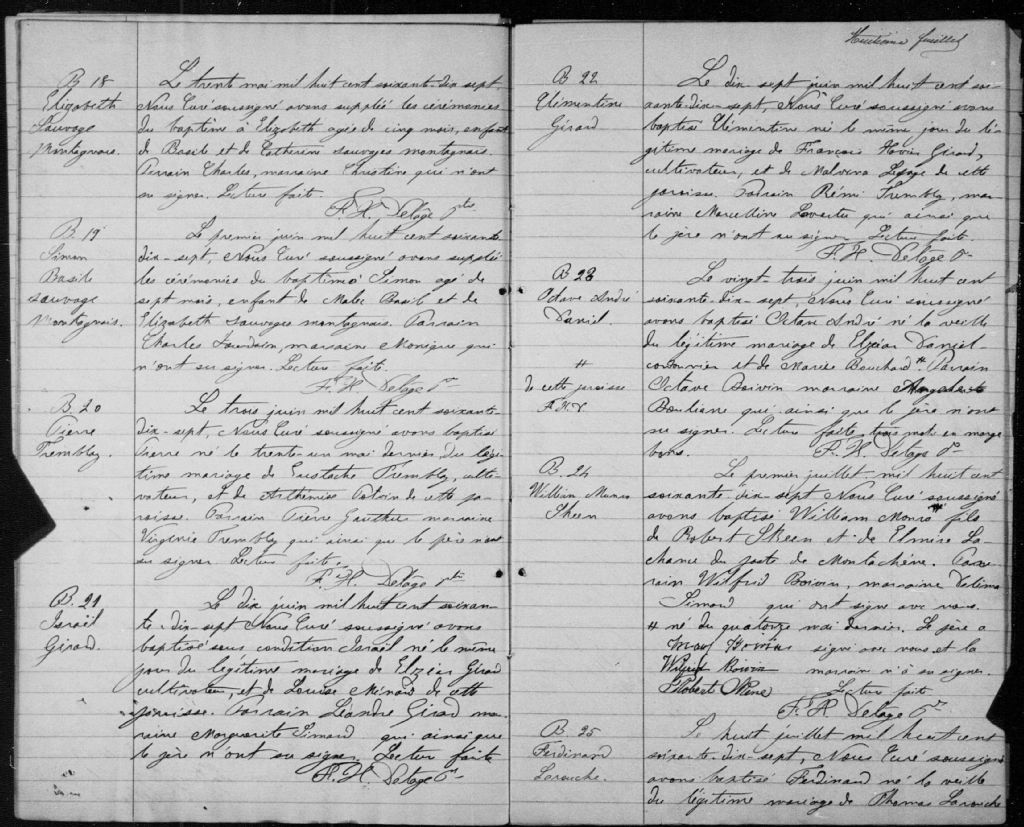 B 18
Elizabeth
Sauvage
Montagnais.
Le trente mai mil huit cent soixante-dix sept,
Nous Curé soussigné avons supplié les cérémonies
du baptême à Elizabeth agée de cinq mois, enfant
de Basile et de Catherine sauvages montagnais.
Parrain Charles, marraine Christine qui n'ont
su signer. Lecture faite.
F. H. Delâge Ptre
B. 19
Simon
Basile
sauvage
Montagnais.
Le premier juin mil huit cent soixante
dix-sept, Nous Curé soussigné avons supplié
les cérémonies du baptême à Simon agé de
sept mois, enfant de Malec Basile et de
Elizabeth sauvages montagnais. Parrain
Charles Jourdain, marraine Monique qui
n'ont su signer. Lecture faite.
F. H. Delâge Ptre
B. 20
Pierre
Tremblay.
Le trois juin mil huit cent soixante-
dix-sept, Nous Curé soussigné avons baptisé
Pierre né le trente-un mai dernier, du légi-
time mariage de Eustache Tremblay, culti-
vateur, et de Arthémise Potvin de cette pa-
roisse. Parrain Pierre Gauthier marraine
Virginie Tremblay qui ainsi que le père n'ont
su signer. Lecture faite.
F. H. Delâge Ptre
B. 21
Israël
Girard.
Le dix juin mil huit cent soixan-
te-dix-sept Nous Curé soussigné avons
baptisé sous condition Israël né le même
jour du légitime mariage de Elzéar Girard
cultivateur, et de Louise Ménard de cette
paroisse. Parrain Léandre Girard mar-
raine Marguerite Simard qui ainsi que
le père n'ont su signer. Lecture faite
F. H. Delâge Ptre
Huitième feuillet
B 22
Clémentine
Girard
Le dix-sept juin mil huit cent soi-
xante-dix-sept, Nous Curé soussigné avons
baptisé Clémentine né le même jour du lé-
gitime mariage de François Xavier Girard,
cultivateur, et de Malvina Lesage de cette
paroisse. Parrain Rémi Tremblay, mar-
raine Marcelline qui ainsi que
le père n'ont su signer. Lecture faite.
F. H. Delâge Ptre
B 23
Octave André
Daniel.
#
de cette paroisse
F. H. D
Le vingt-trois juin mil huit cent
soixante-dix-sept, Nous Curé soussigné
avons baptisé Octave André né la veille
du légitime mariage de Elzéar Daniel
et de Marie Bouchard # Parrain
Octave Boivin marraine
Bouliane qui ainsi que le père n'ont
su signer. Lecture faite, trois mots en marge
bons.
F. H. Delâge Ptre
B. 24
William Munro
Skeen
Le premier juillet mil huit cent
soixante-dix-sept Nous Curé soussigné
avons baptisé William Monro # fils
de Robert Skeen et de Elmire La-
chance du poste de Parr-
rain Wilfrid Boivin marraine Délima
Simard qui ont signé avec nous.
# né du quatorze mai dernier. Le père a
signé avec nous et la
Wilfrid Boivin marraine n'a su signer.
Robert Skene Lecture faite
F. H. Delâge Ptre
B. 25
Ferdinand
Larouche.
Le huit juillet mil huit cent
soixante-dix-sept, Nous Curé soussigné
avons baptisé Ferdinand né la veille
du légitime mariage de Thomas Larouche